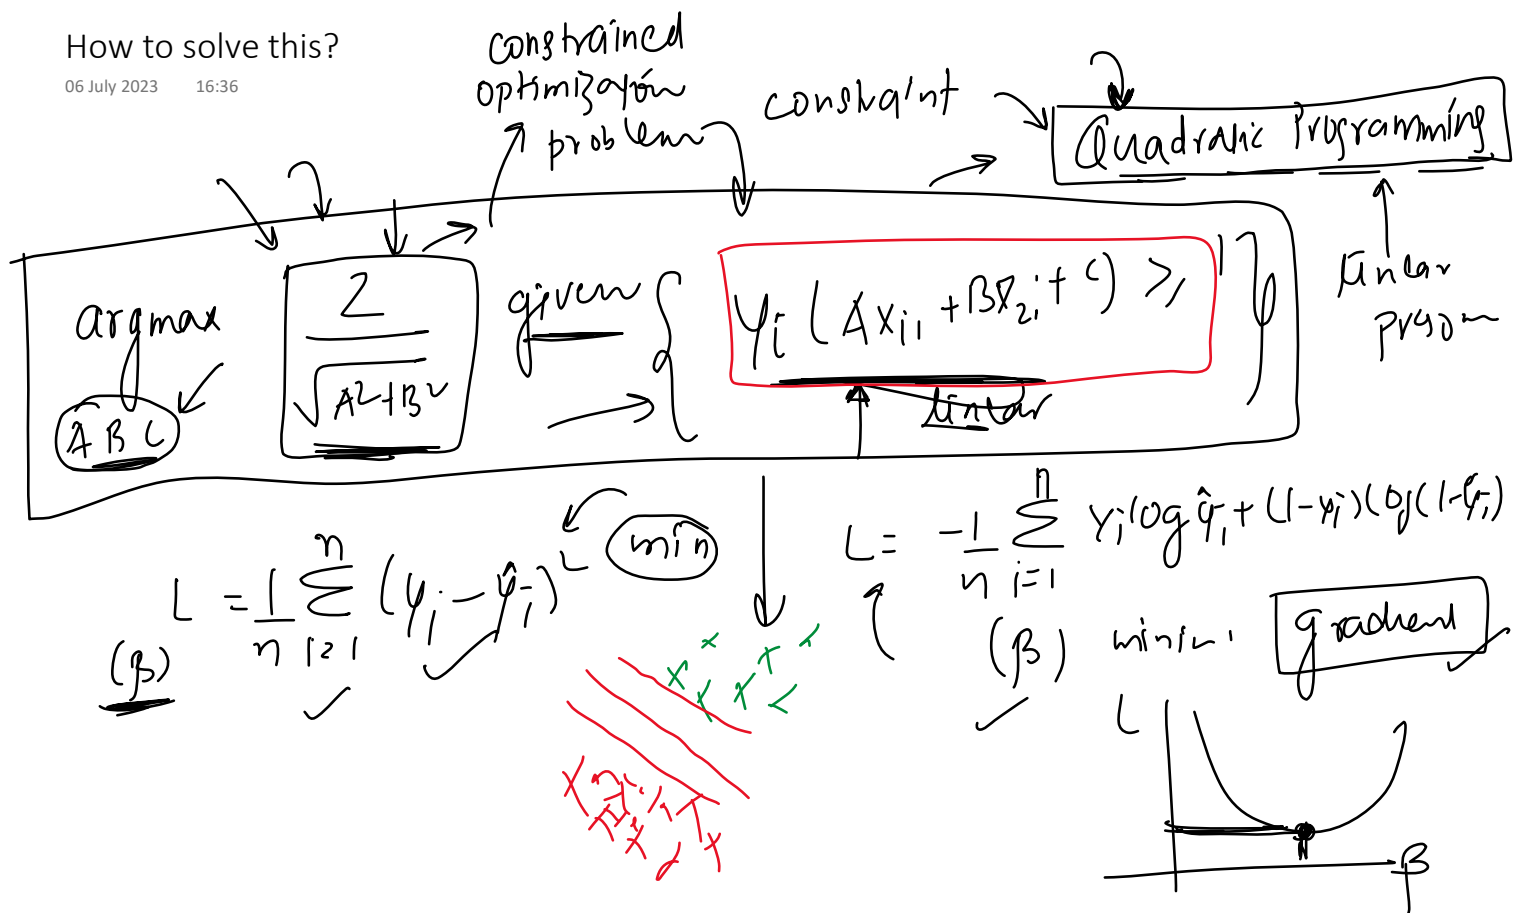 How to solve this?
06 July 2023 16:36
constrained
optimization
problem
constraint
Quadratic Programming
linear
argmax
A B C
2
√A²+B²
given { yi ( A x1i + B x2i + C ) ≥ 1 }
linear
L = 1/n Σ i=1 n (yi - ŷi)²
min
(β)
L = -1/n Σ i=1 n yi log ŷi + (1-yi) log(1-ŷi)
(β) minim.
gradient
L
β